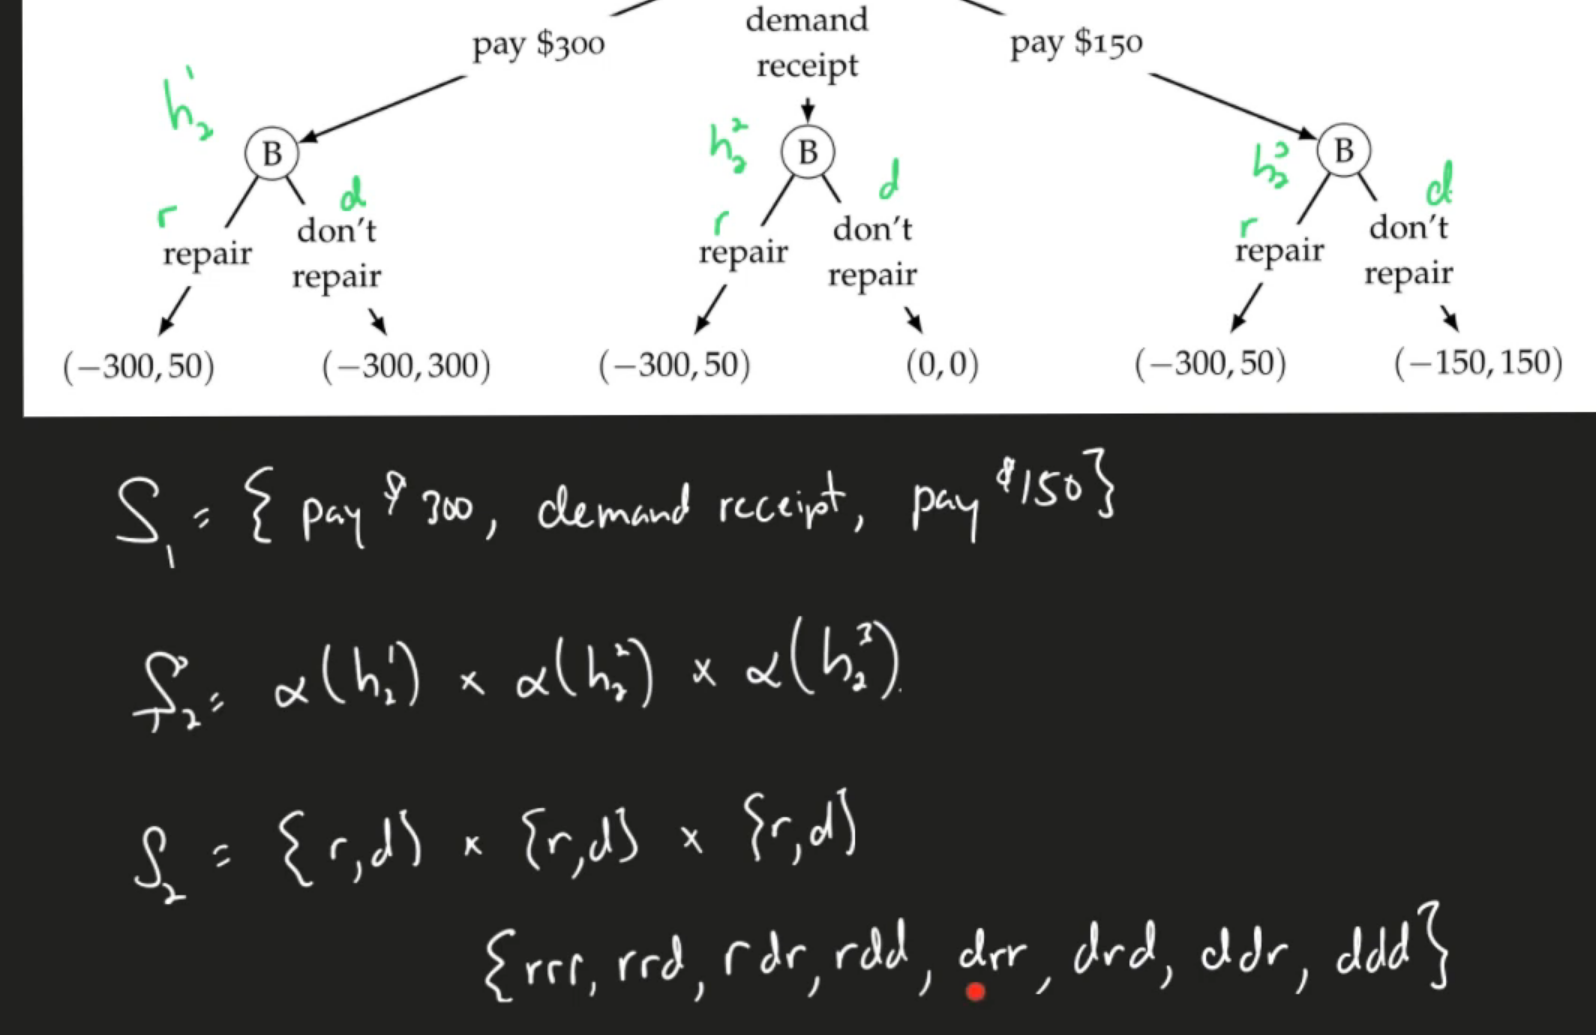 demand
pay $300
receipt
pay $150
h₂¹
B
h₂²
B
h₂³
B
r
d
r
d
r
d
repair
don't
repair
repair
don't
repair
repair
don't
repair
(−300,50)
(−300,300)
(−300,50)
(0,0)
(−300,50)
(−150,150)
S₁ = { pay $ 300, demand receipt, pay $150}
S₂ = α(h₂¹) × α(h₂²) × α(h₂³).
S₂ = {r,d} × {r,d} × {r,d}
{rrr, rrd, rdr, rdd, drr, drd, ddr, ddd}